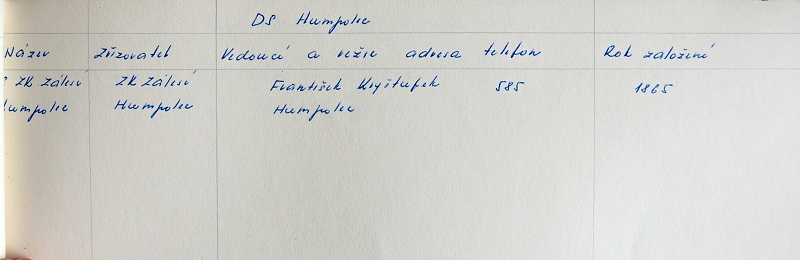 DS Humpolec
Název Zřizovatel Vedoucí a režie adresa telefon Rok založení
ZK Zálesí ZK Zálesí František Kryštufek 585 1865
Humpolec Humpolec Humpolec